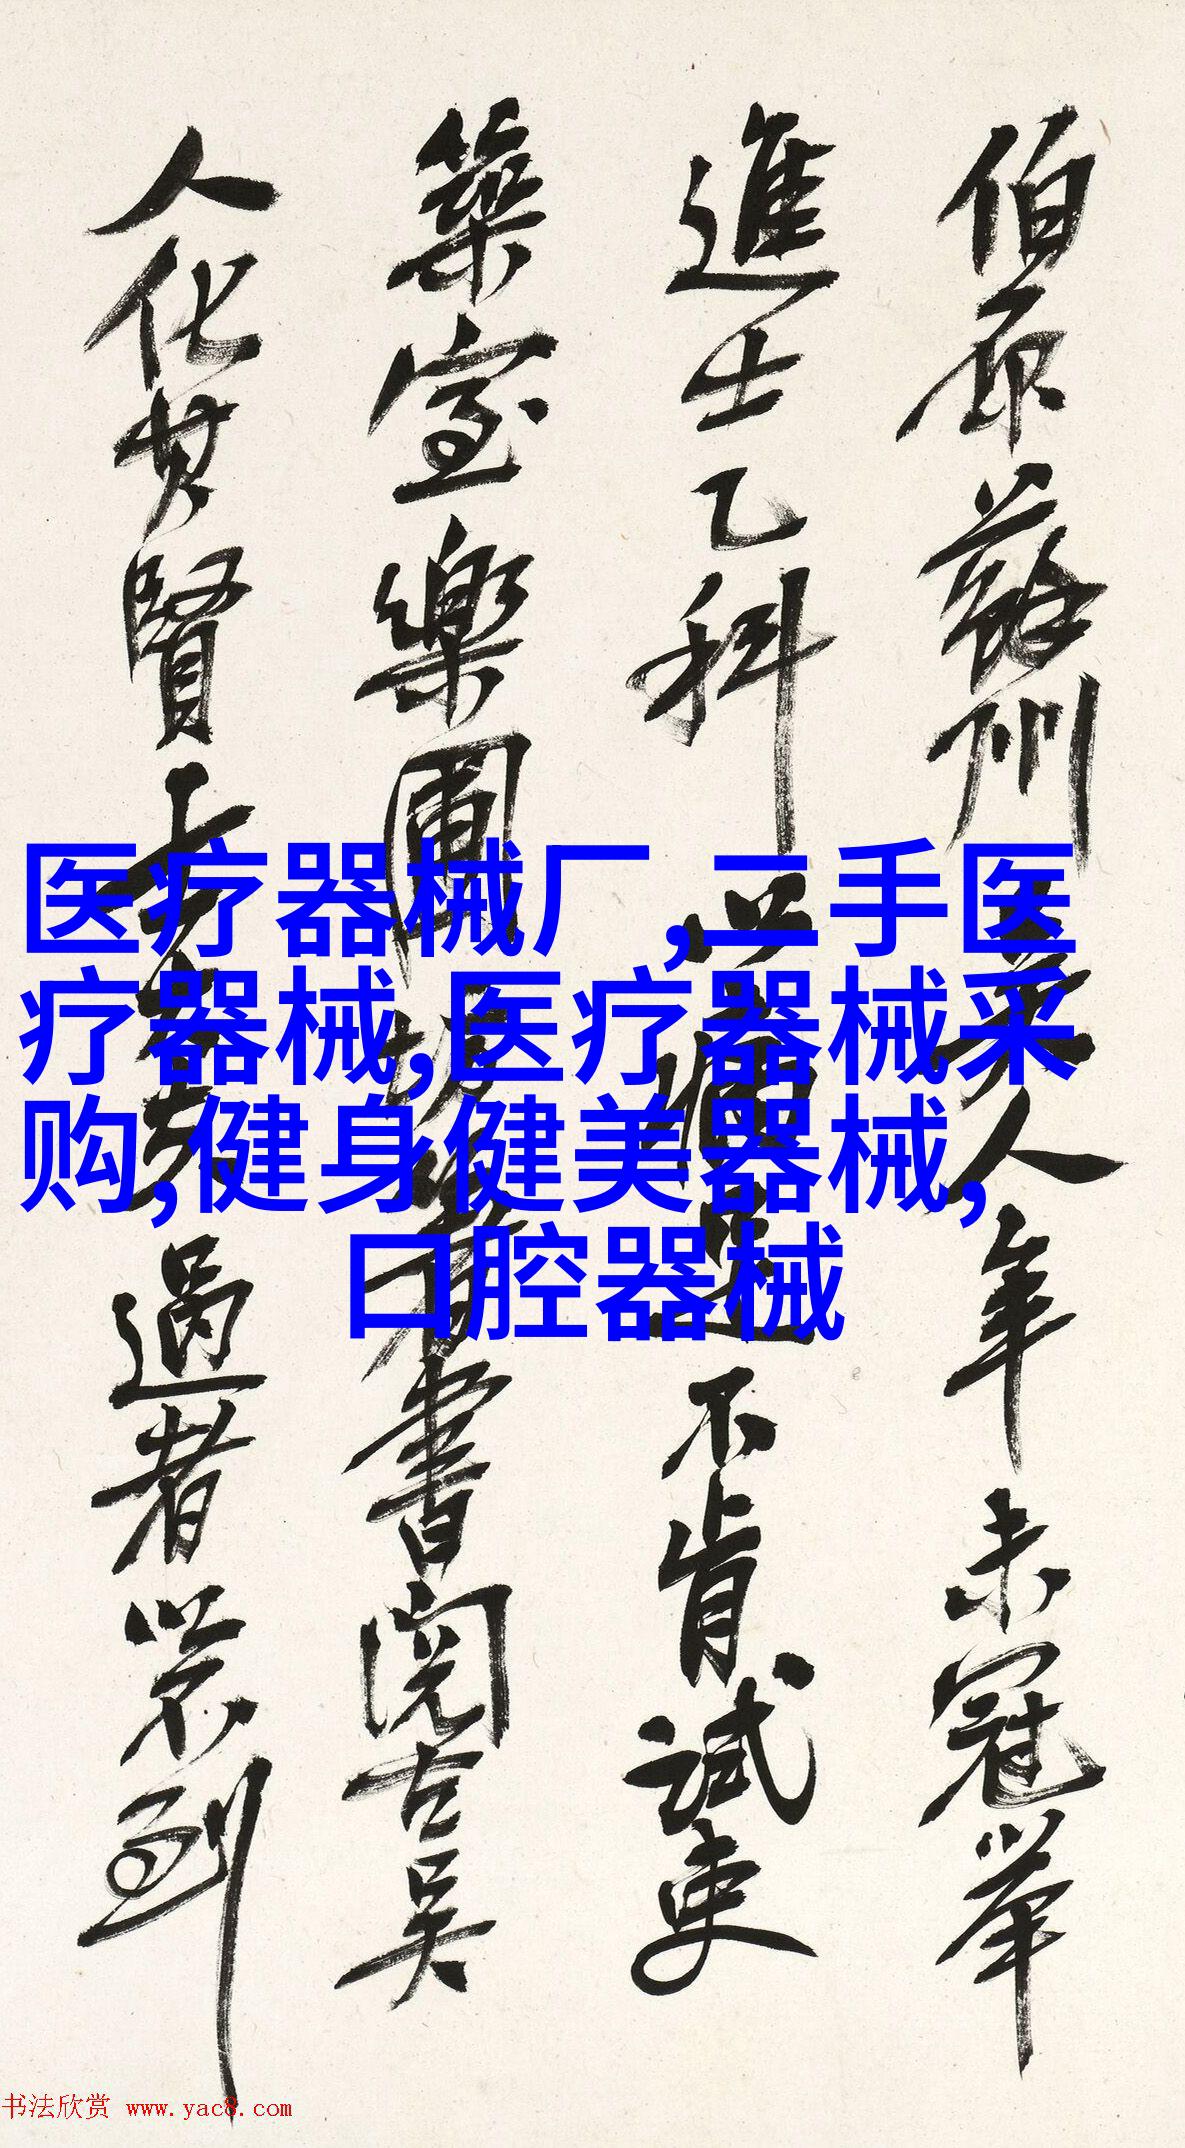 伯原蘇州吳人年未冠舉
進士乙科以病足不肯試吏
築室樂圃坊著書閱古吳
人化其賢士大夫過者以不到
医疗器械厂,二手医
疗器械,医疗器械采
购,健身健美器械,
口腔器械
书法欣赏 www.yac8.com